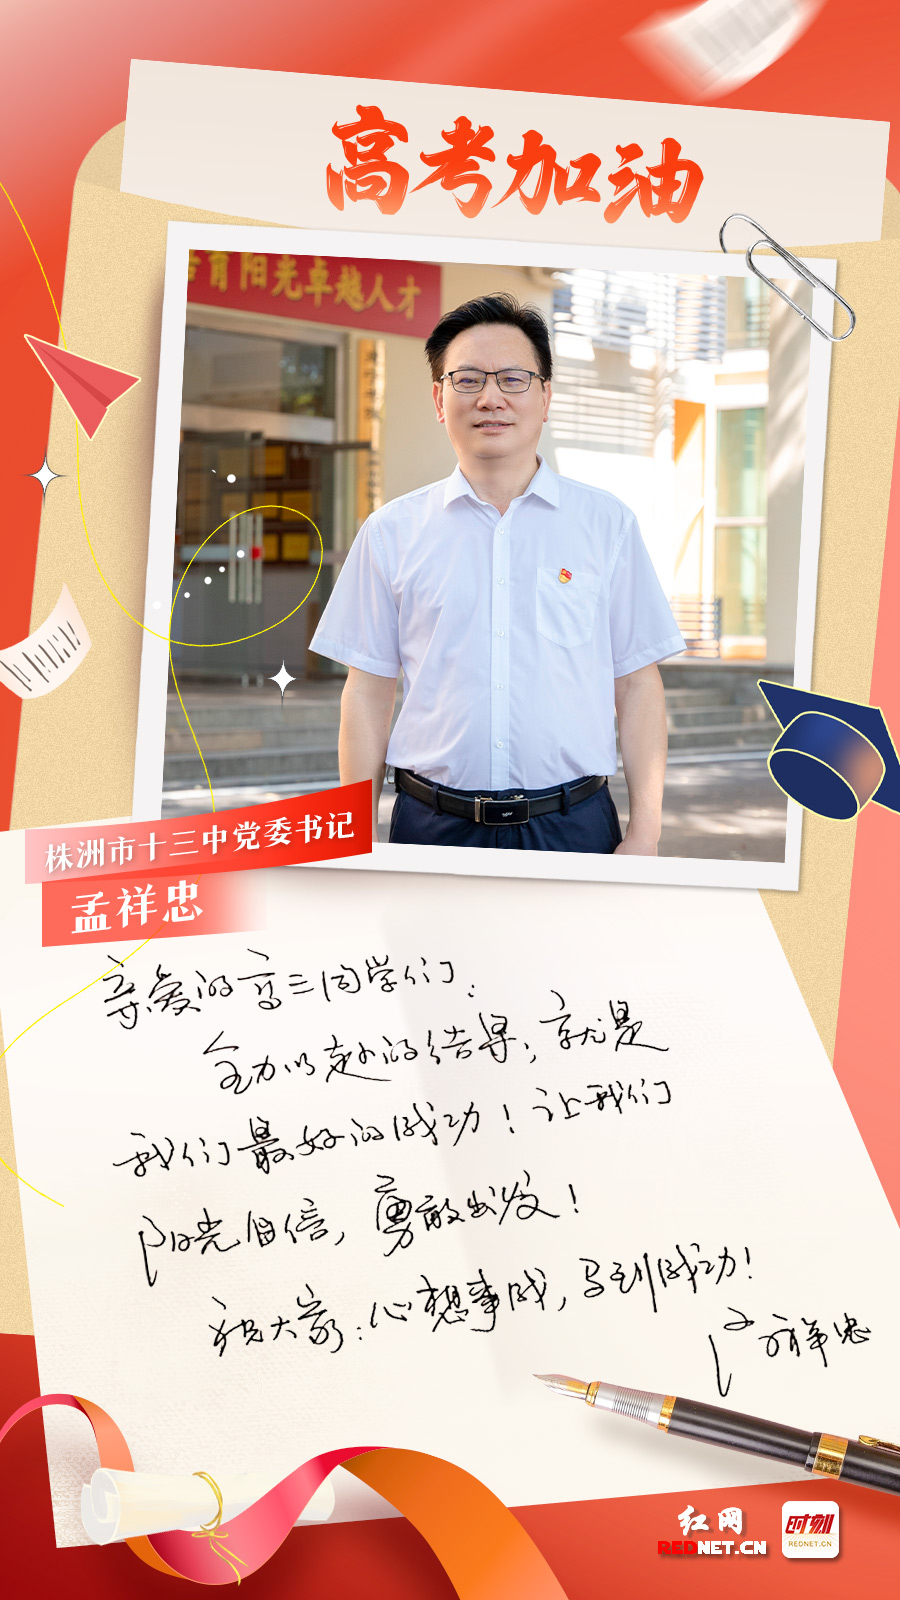 高考加油
育阳光卓越人才
株洲市十三中党委书记
孟祥忠
亲爱的高三同学们：
全力以赴的结果，就是
我们最好的成功！让我们
阳光自信，勇敢出发！
祝大家：心想事成，马到成功！
孟祥忠
红网
REDNET.CN
时刻
REDNET.CN